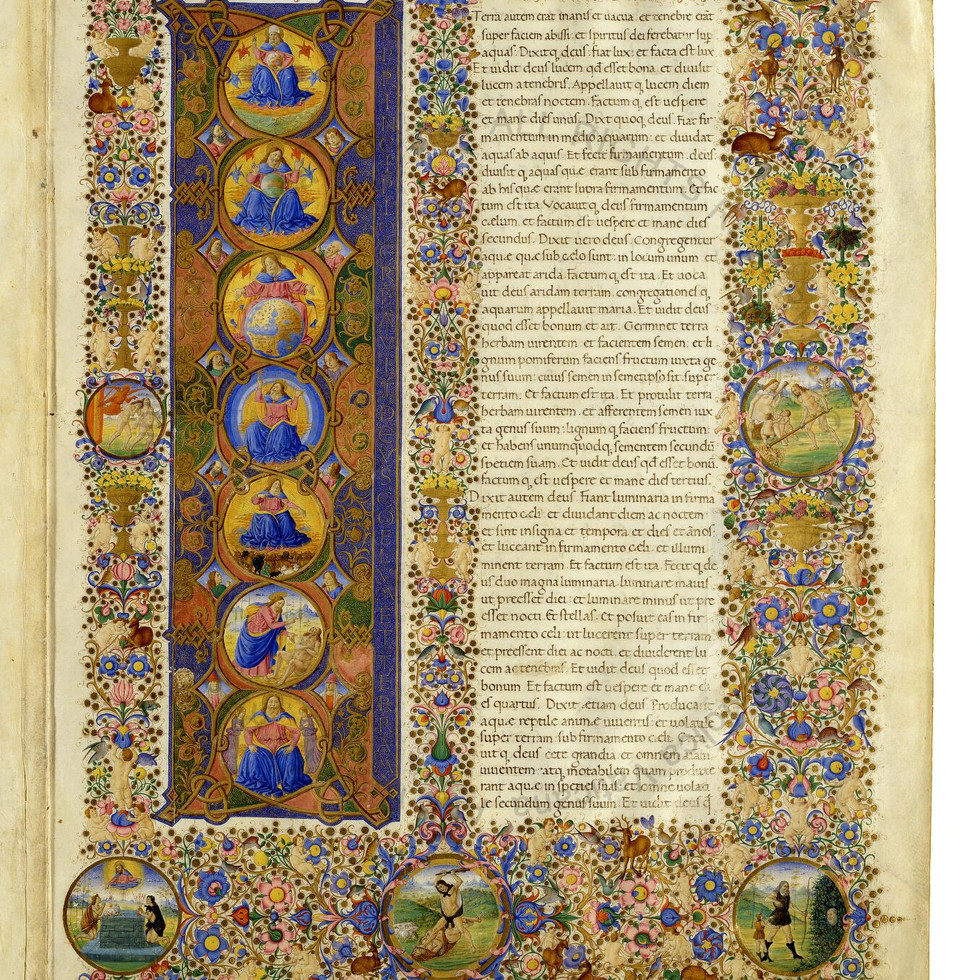 Terra autem erat inanis et uacua. et tenebre erāt
super faciem abissi. et spiritus dei ferebatur sup
aquas. Dixitq; deus. fiat lux: et facta est lux
Et uidit deus lucem qđ esset bona. et diuisit
lucem a tenebris. Appellauitq; lucem diem
et tenebras noctem. Factumq; est uespere
et mane dies unus. Dixit quoq; deus. Fiat fir
mamentum in medio aquarum: et diuidat
aquas ab aquis. Et fecit firmamentum. deus.
diuisitq; aquas que erant sub firmamento
ab his quę erant supra firmamentum. Et fac
tum est ita. Vocauitq; deus firmamentum
cęlum. et factum est uespere et mane dies
secundus. Dixit uero deus. Congregentur
aquę quę sub cęlo sunt: in locum unum. et
appareat arida. Factumq; est ita. Et uoca
uit deus aridam terram. congregationesq;
aquarum appellauit maria. Et uidit deus
quod esset bonum et ait. Germinet terra
herbam uirentem. et facientem semen: et li
gnum pomiferum faciens fructum iuxta ge
nus suum. cuius semen in semetipso sit. super
terram. Et factum est ita. Et protulit terra
herbam uirentem. et afferentem semen iux
ta genus suum: lignumq; faciens fructum
et habens unumquodq; sementem secundū
speciem suam. Et uidit deus qđ esset bonū.
factumq; est uespere et mane dies tertius.
Dixit autem deus. Fiant luminaria in firma
mento cęli. et diuidant diem ac noctem
et sint in signa et tempora. et dies et ānos
et luceant in firmamento cęli. et illumi
minent terram. Et factum est ita. Fecitq; de
us duo magna luminaria. luminare maius
ut preesset diei: et luminare minus ut pre
esset nocti. Et stellas. Et posuit eas in fir
mamento celi. ut lucerent super terram
et preessent diei ac nocti. et diuiderent lu
cem ac tenebras. Et uidit deus quod esset
bonum. Et factum est uespere et mane di
es quartus. Dixit etiam deus. Producant
aquę reptile animę uiuentis et uolatile
super terram. sub firmamento cęli. Crea
uitq; deus cete grandia. et omnem animā
uiuentem. atq; motabilem quam produxe
rant aque in species suas. et omne uolati
le secundum genus suum. Et uidit deus qđ